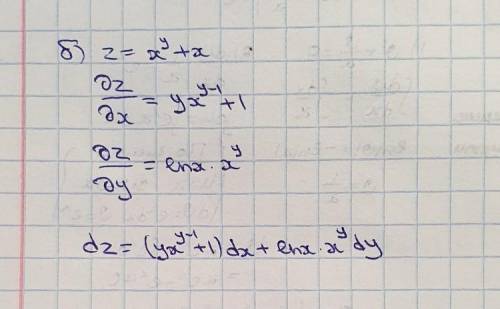 б) z = x^y + x
∂z/∂x = yx^(y-1) + 1
∂z/∂y = lnx · x^y
dz = (yx^(y-1) + 1) dx + lnx · x^y dy